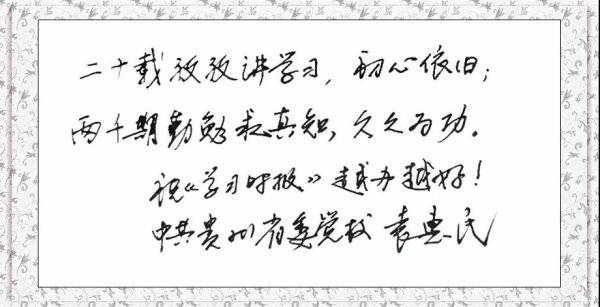 二十载孜孜讲学习，初心依旧；
两千期勤勉求真知，久久为功。
祝《学习时报》越办越好！
中共贵州省委党校 袁惠民